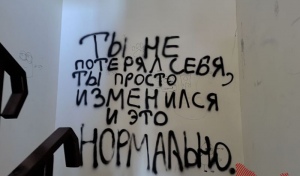 ТЫ НЕ
ПОТЕРЯЛ СЕБЯ,
ТЫ ПРОСТО
ИЗМЕНИЛСЯ
И ЭТО
НОРМАЛЬНО.